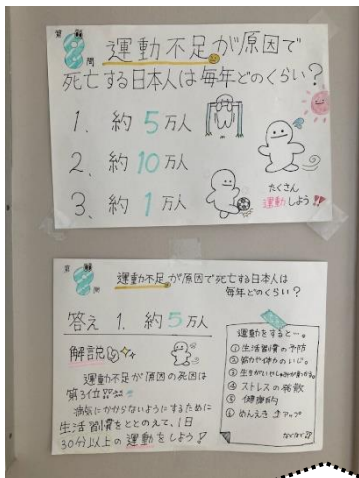 第8問 運動不足が原因で
死亡する日本人は毎年どのくらい?
1、約5万人
2、約10万人
3、約1万人
たくさん
運動しよう!!
第8問 運動不足が原因で死亡する日本人は
毎年どのくらい?
答え 1. 約5万人
解説
運動不足が原因の死因は
第3位!!
病気にかからないようにするために
生活習慣をととのえて、1日
30分以上の運動をしよう!!
運動をすると…。
①生活習慣の予防
②筋力や体力のいじ。
④ストレスの発散
⑤健康的
⑥めんえき アップ
などなど!!